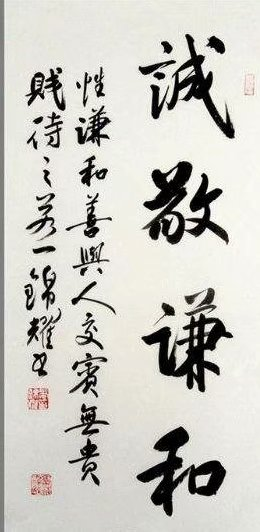 誠敬謙和
性谦和善與人交賓無貴
贱待之若一錦耀书